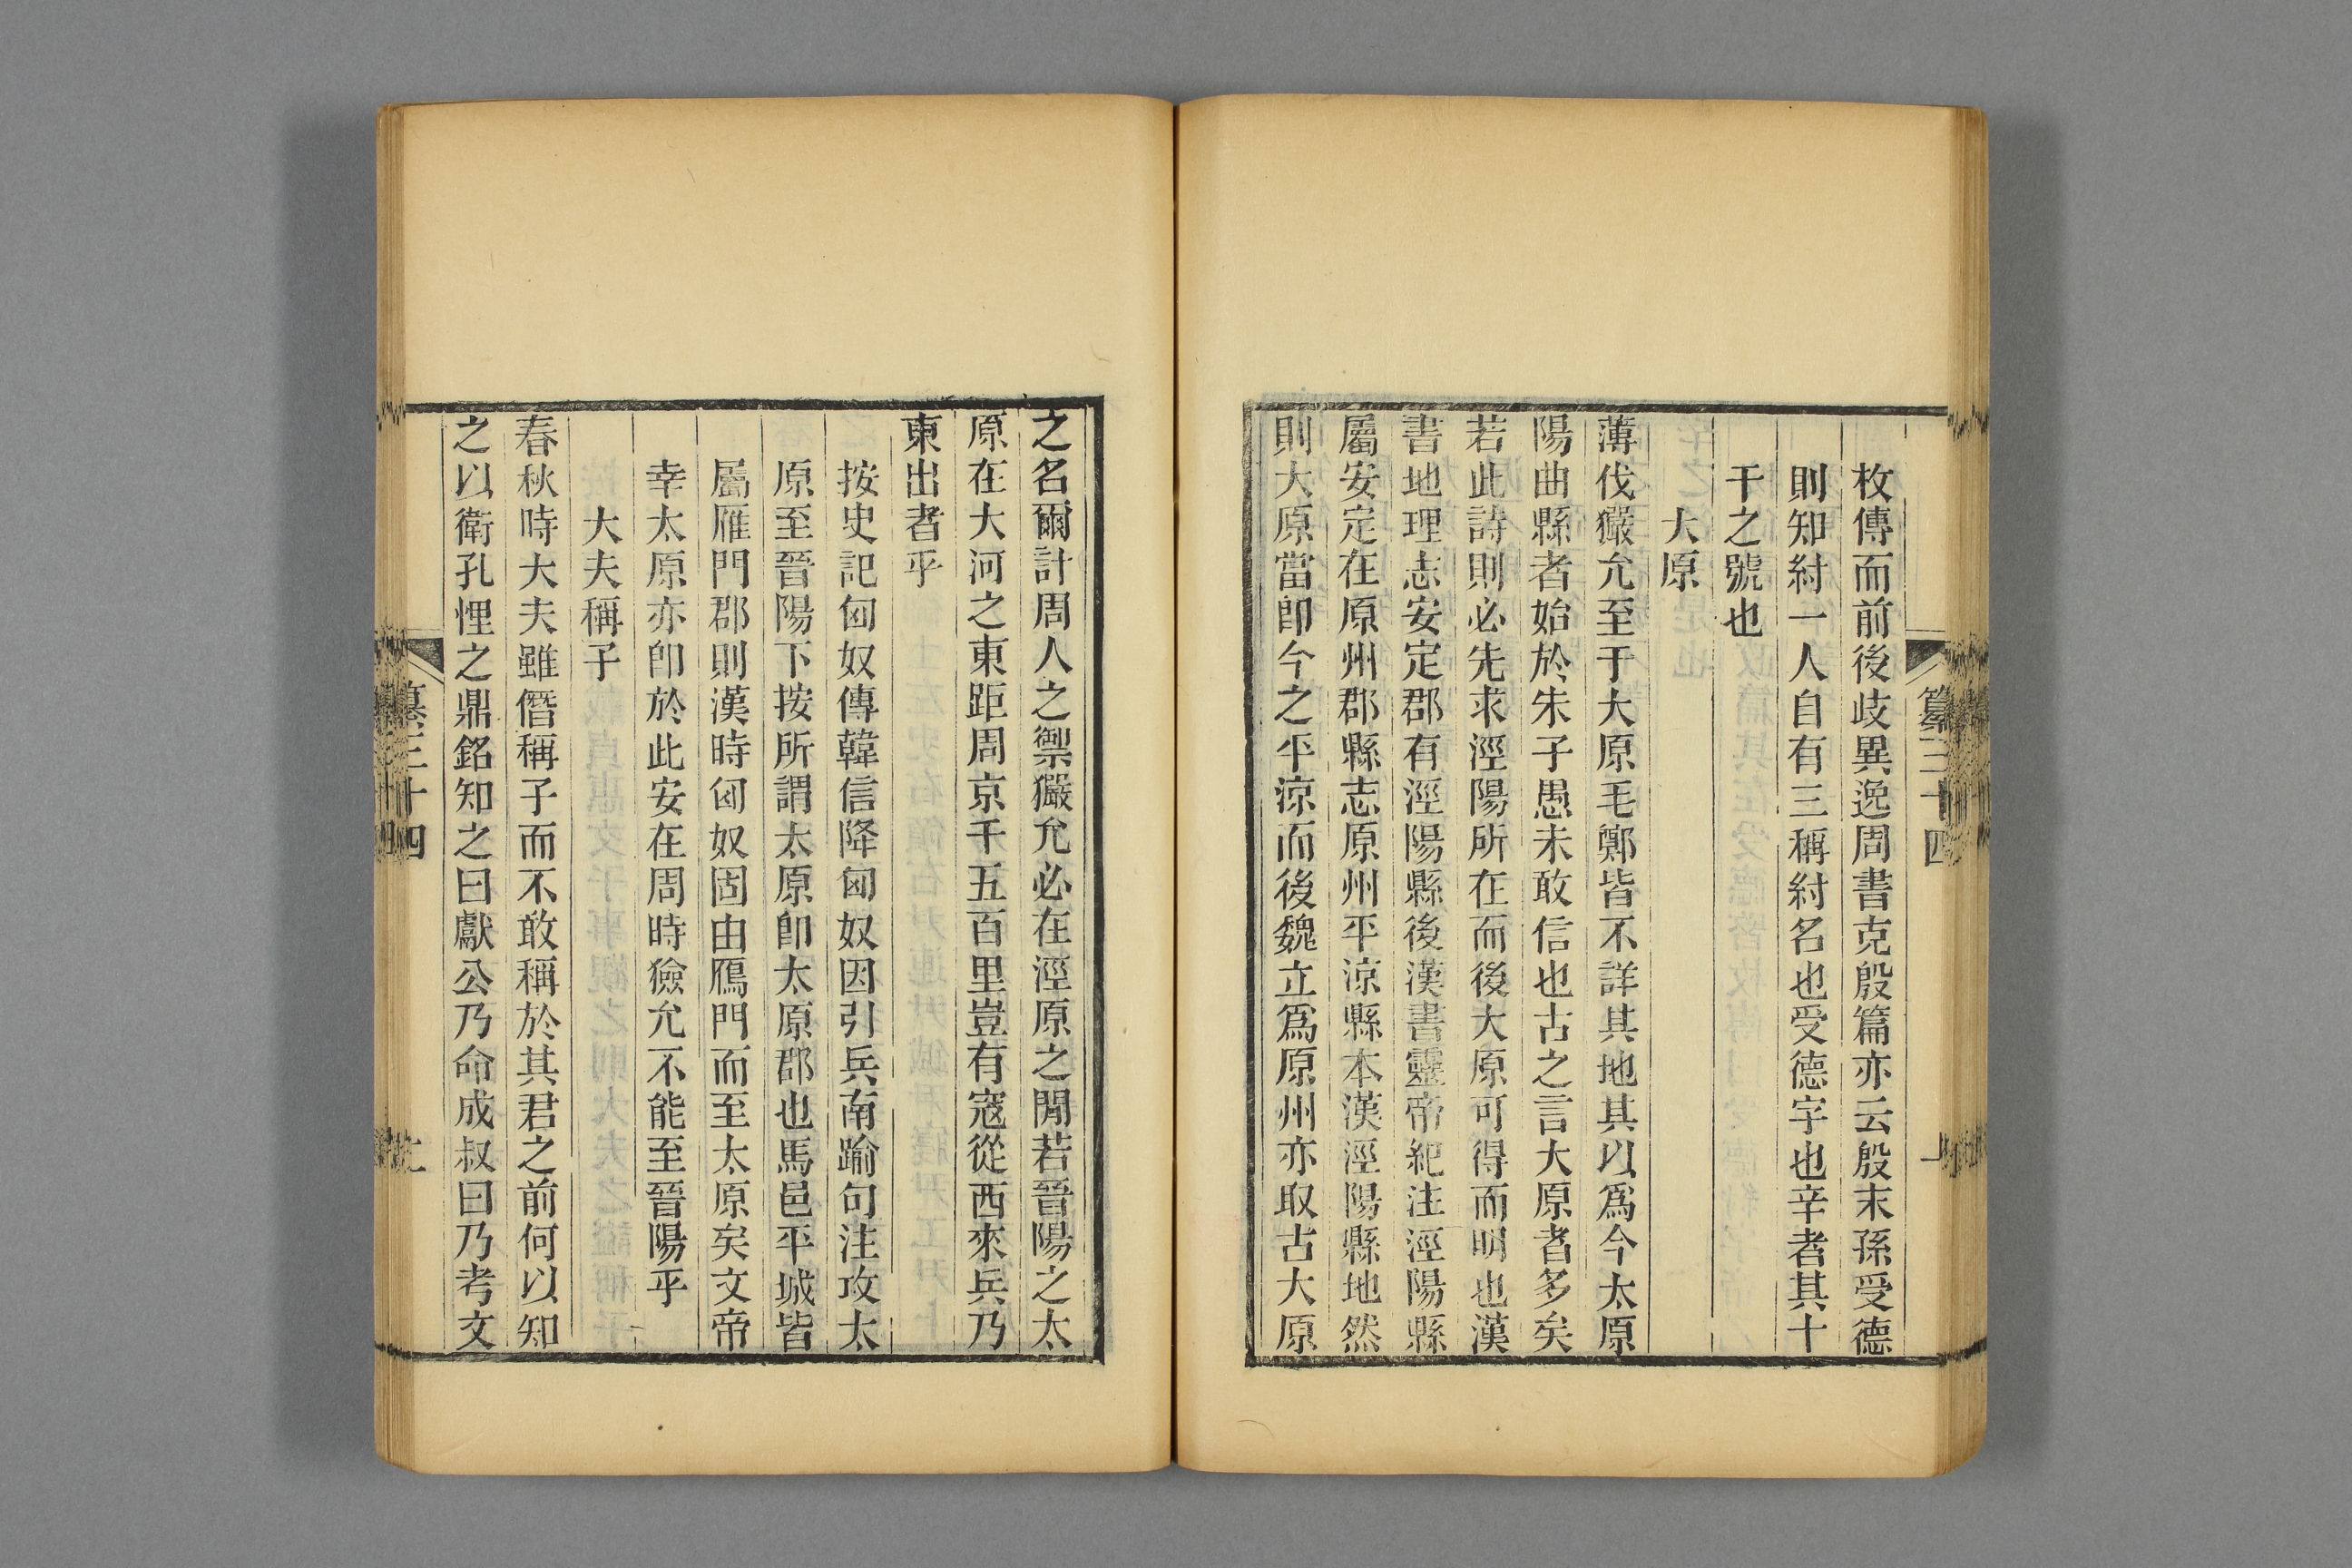 枚傳而前後歧異逸周書克殷篇亦云殷末孫受德
則知紂一人自有三稱紂名也受德字也辛者其十
干之號也
大原
薄伐玁允至于大原毛鄭皆不詳其地其以爲今太原
陽曲縣者始於朱子愚未敢信也古之言大原者多矣
若此詩則必先求涇陽所在而後大原可得而明也漢
書地理志安定郡有涇陽縣後漢書靈帝紀注涇陽縣
屬安定在原州郡縣志原州平涼縣本漢涇陽縣地然
則大原當卽今之平涼而後魏立爲原州亦取古大原
之名爾計周人之禦玁允必在涇原之閒若晉陽之太
原在大河之東距周京千五百里豈有寇從西來兵乃
東出者乎
按史記匈奴傳韓信降匈奴因引兵南踰句注攻太
原至晉陽下按所謂太原卽太原郡也馬邑平城皆
屬雁門郡則漢時匈奴固由鴈門而至太原矣文帝
幸太原亦卽於此安在周時獫允不能至晉陽乎
大夫稱子
春秋時大夫雖僭稱子而不敢稱於其君之前何以知
之以衛孔悝之鼎銘知之曰獻公乃命成叔曰乃考文